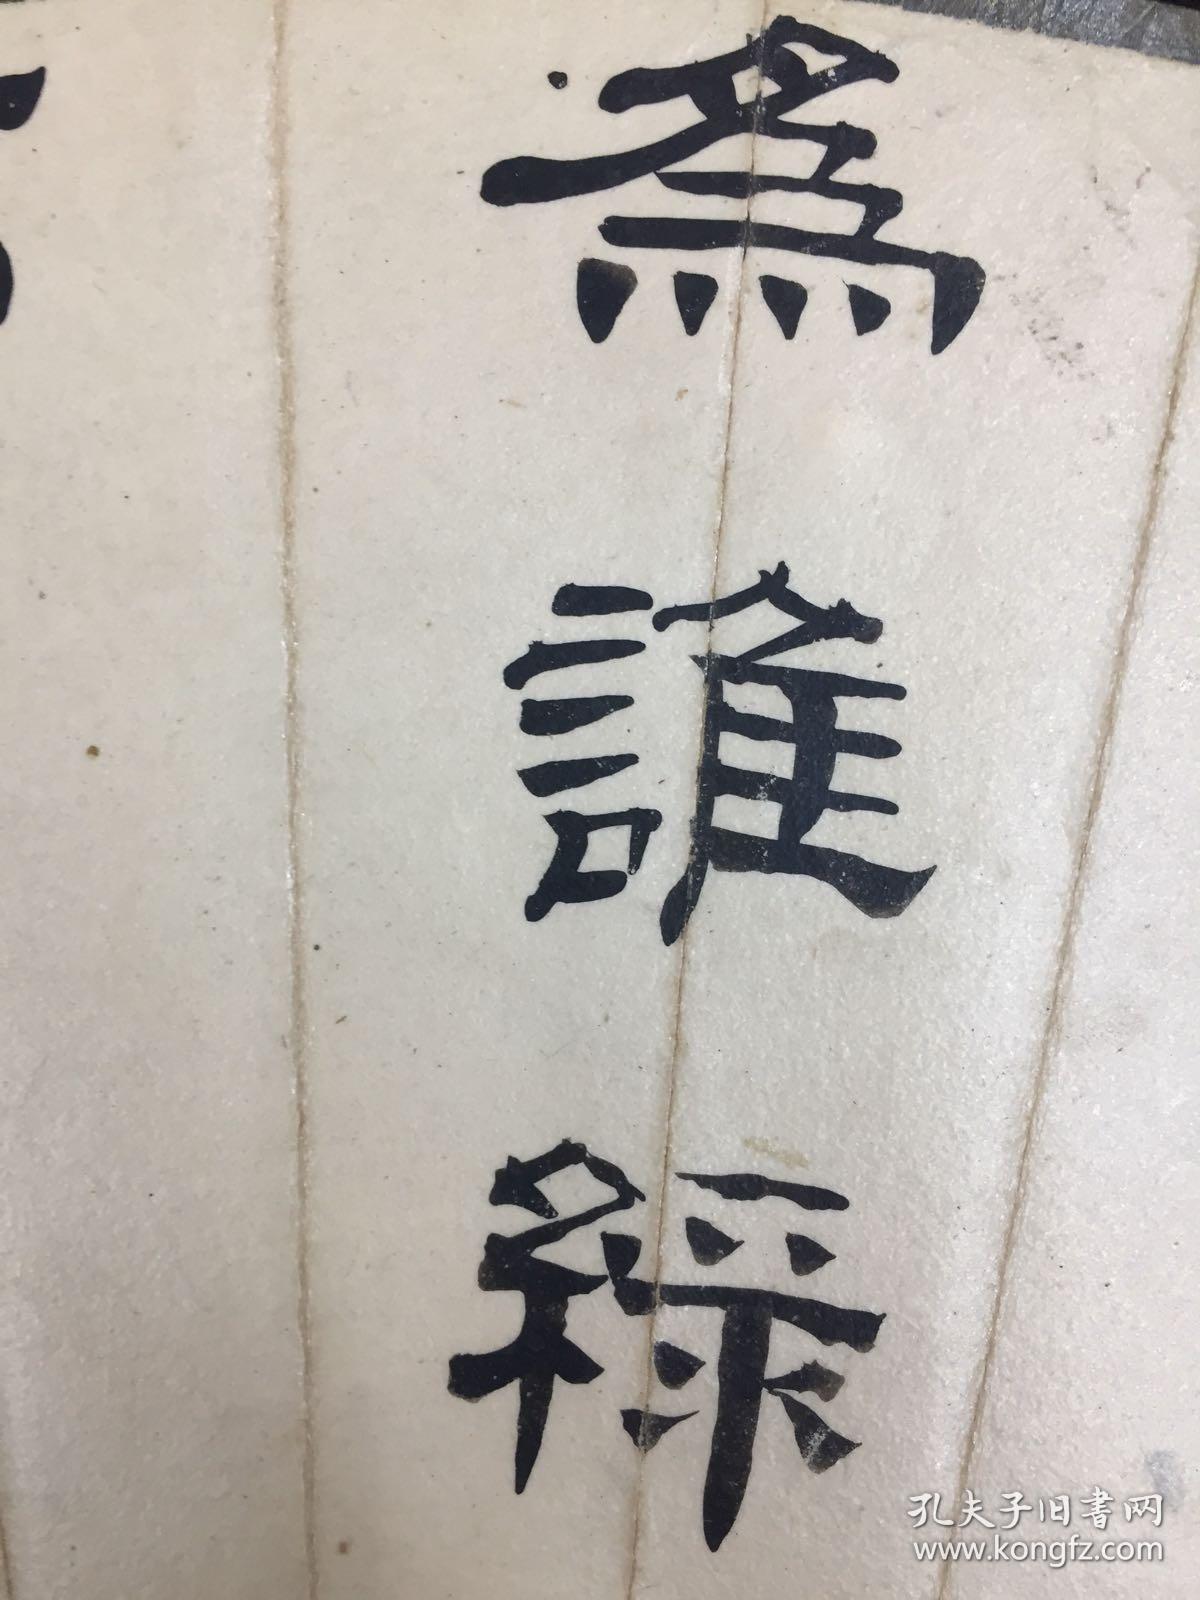 為
誰
綵
孔夫子旧书网
www.kongfz.com